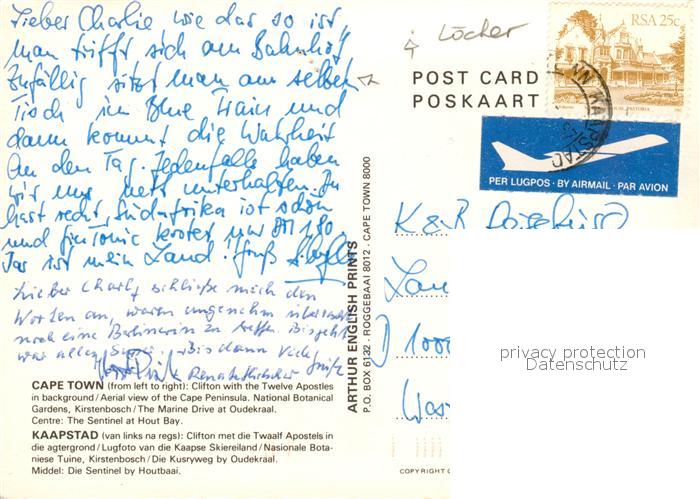 Lieber Charlie wie das so ist
man trifft sich am Bahnhof
zufällig sitzt man am selben
Tisch im Blue Train und
dann kommt die Wahrheit
An den Tag. Jedenfalls haben
wir uns nett unterhalten. Du
hast recht, Südafrika ist schön
und Gin Tonic kostet nur DM 1,80
Das ist mein Land. Gruß
Lieber Charly schließe mich den
Worten an, waren angenehm überrascht
noch eine Berlinerin zu treffen. Bis jetzt
war alles Super. Bis dann Viele Grüße
Horst Renate
Löcher
RSA 25c
PRETORIA
KAAPSTAD
POST CARD
POSKAART
PER LUGPOS · BY AIRMAIL · PAR AVION
K & R
D 1000
ARTHUR ENGLISH PRINTS
P.O. BOX 6132 · ROGGEBAAI 8012 · CAPE TOWN 8000
privacy protection
Datenschutz
CAPE TOWN (from left to right): Clifton with the Twelve Apostles
in background/Aerial view of the Cape Peninsula. National Botanical
Gardens, Kirstenbosch/The Marine Drive at Oudekraal.
Centre: The Sentinel at Hout Bay.
KAAPSTAD (van links na regs): Clifton met die Twaalf Apostels in
die agtergrond/Lugfoto van die Kaapse Skiereiland/Nasionale Bota-
niese Tuine, Kirstenbosch/Die Kusryweg by Oudekraal.
Middel: Die Sentinel by Houtbaai.
COPYRIGHT